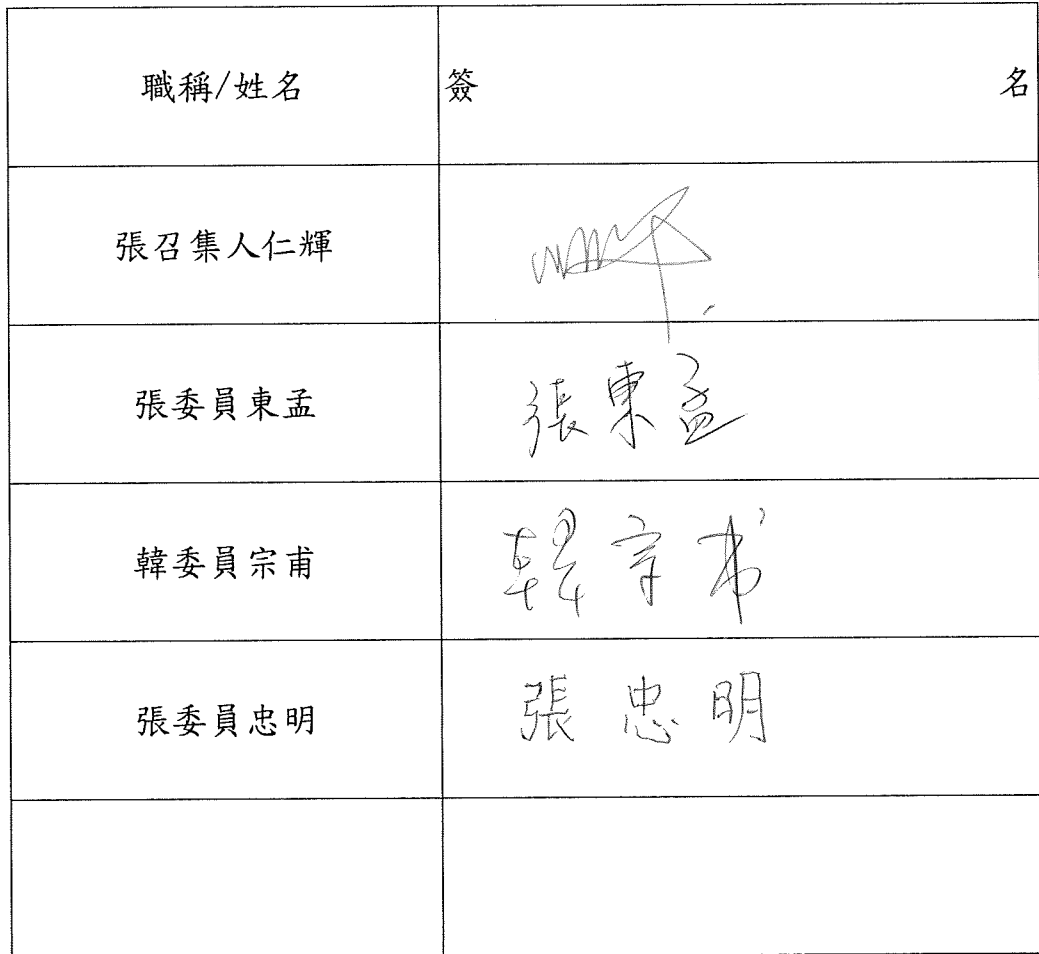 職稱/姓名 簽 名
張召集人仁輝
張委員東孟 張東孟
韓委員宗甫 韓宗甫
張委員忠明 張忠明